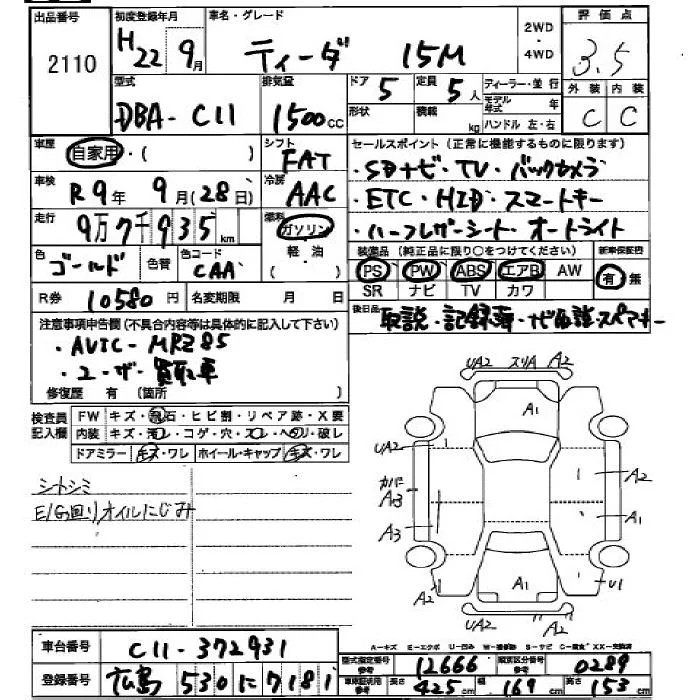 出品番号 初度登録年月 車名・グレード 2WD・4WD 評価点
2110 H22 9月 ティーダ 15M 3.5
型式 排気量 ドア 5 定員 5人 ディーラー・並行 外装 内装
DBA-C11 1500cc 形状 積載 kg モデル年式 年 C C
ハンドル 左・右
車歴 自家用・( ) シフト FAT セールスポイント (正常に機能するものに限ります)
車検 R9年9月(28日) 冷房 AAC ・SDナビ・TV・バックカメラ
・ETC・HID・スマートキー
走行 9万7千935km 燃料 ガソリン ・ハーフレザーシート・オートライト
軽・油
色 ゴールド 色替 色コード CAA 装備品 (純正品に限り○をつけてください) 新車保証書
PS PW ABS エアB AW 有・無
SR ナビ TV カワ
R券 10580円 名変期限 月 日
後日品 取説・記録簿・ナビ取説・スペアキー
注意事項申告欄(不具合内容等は具体的に記入して下さい)
・AVIC-MRZ85
・ユーザー買取車
修復歴 有 (箇所 )
検査員記入欄 FW キズ・飛石・ヒビ割・リペア跡・X要
内装 キズ・汚レ・コゲ・穴・スレ・ヘタリ・破レ
ドアミラー キズ・ワレ ホイール・キャップ キズ・ワレ
シートシミ
E/G回りオイルにじみ
UA2 スリA A2
A1
UA2
A2
カバーA3
A1
A3
A1
A2
U1
UA2 A2
A-キズ E-エクボ U-凹み W-補修跡 S-サビ C-腐食 XX-交換済
車台番号 C11-372931
型式指定番号 12666 類別区分番号 0289
登録番号 広島 530 に 7181
長さ 425cm 幅 169cm 高さ 153cm